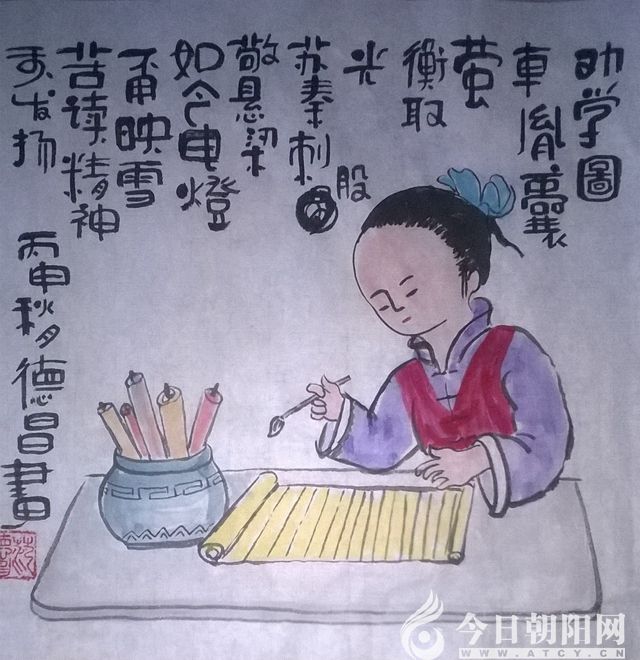 助学圖
車胤囊
萤
衡取
光
苏秦刺股
敬悬梁
如今电燈
甭映雪
苦读精神
发扬
丙申秋月德昌畫
今日朝阳网
WWW.ATCY.CN